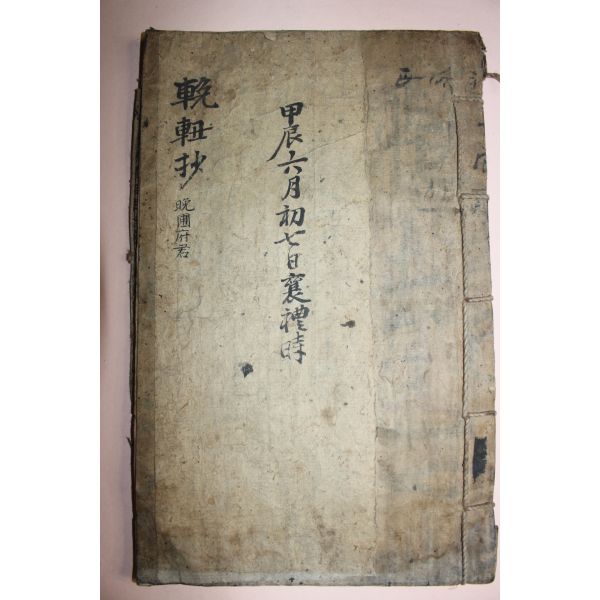 甲辰六月初七日襄禮時
輓軸抄
晩圃府君